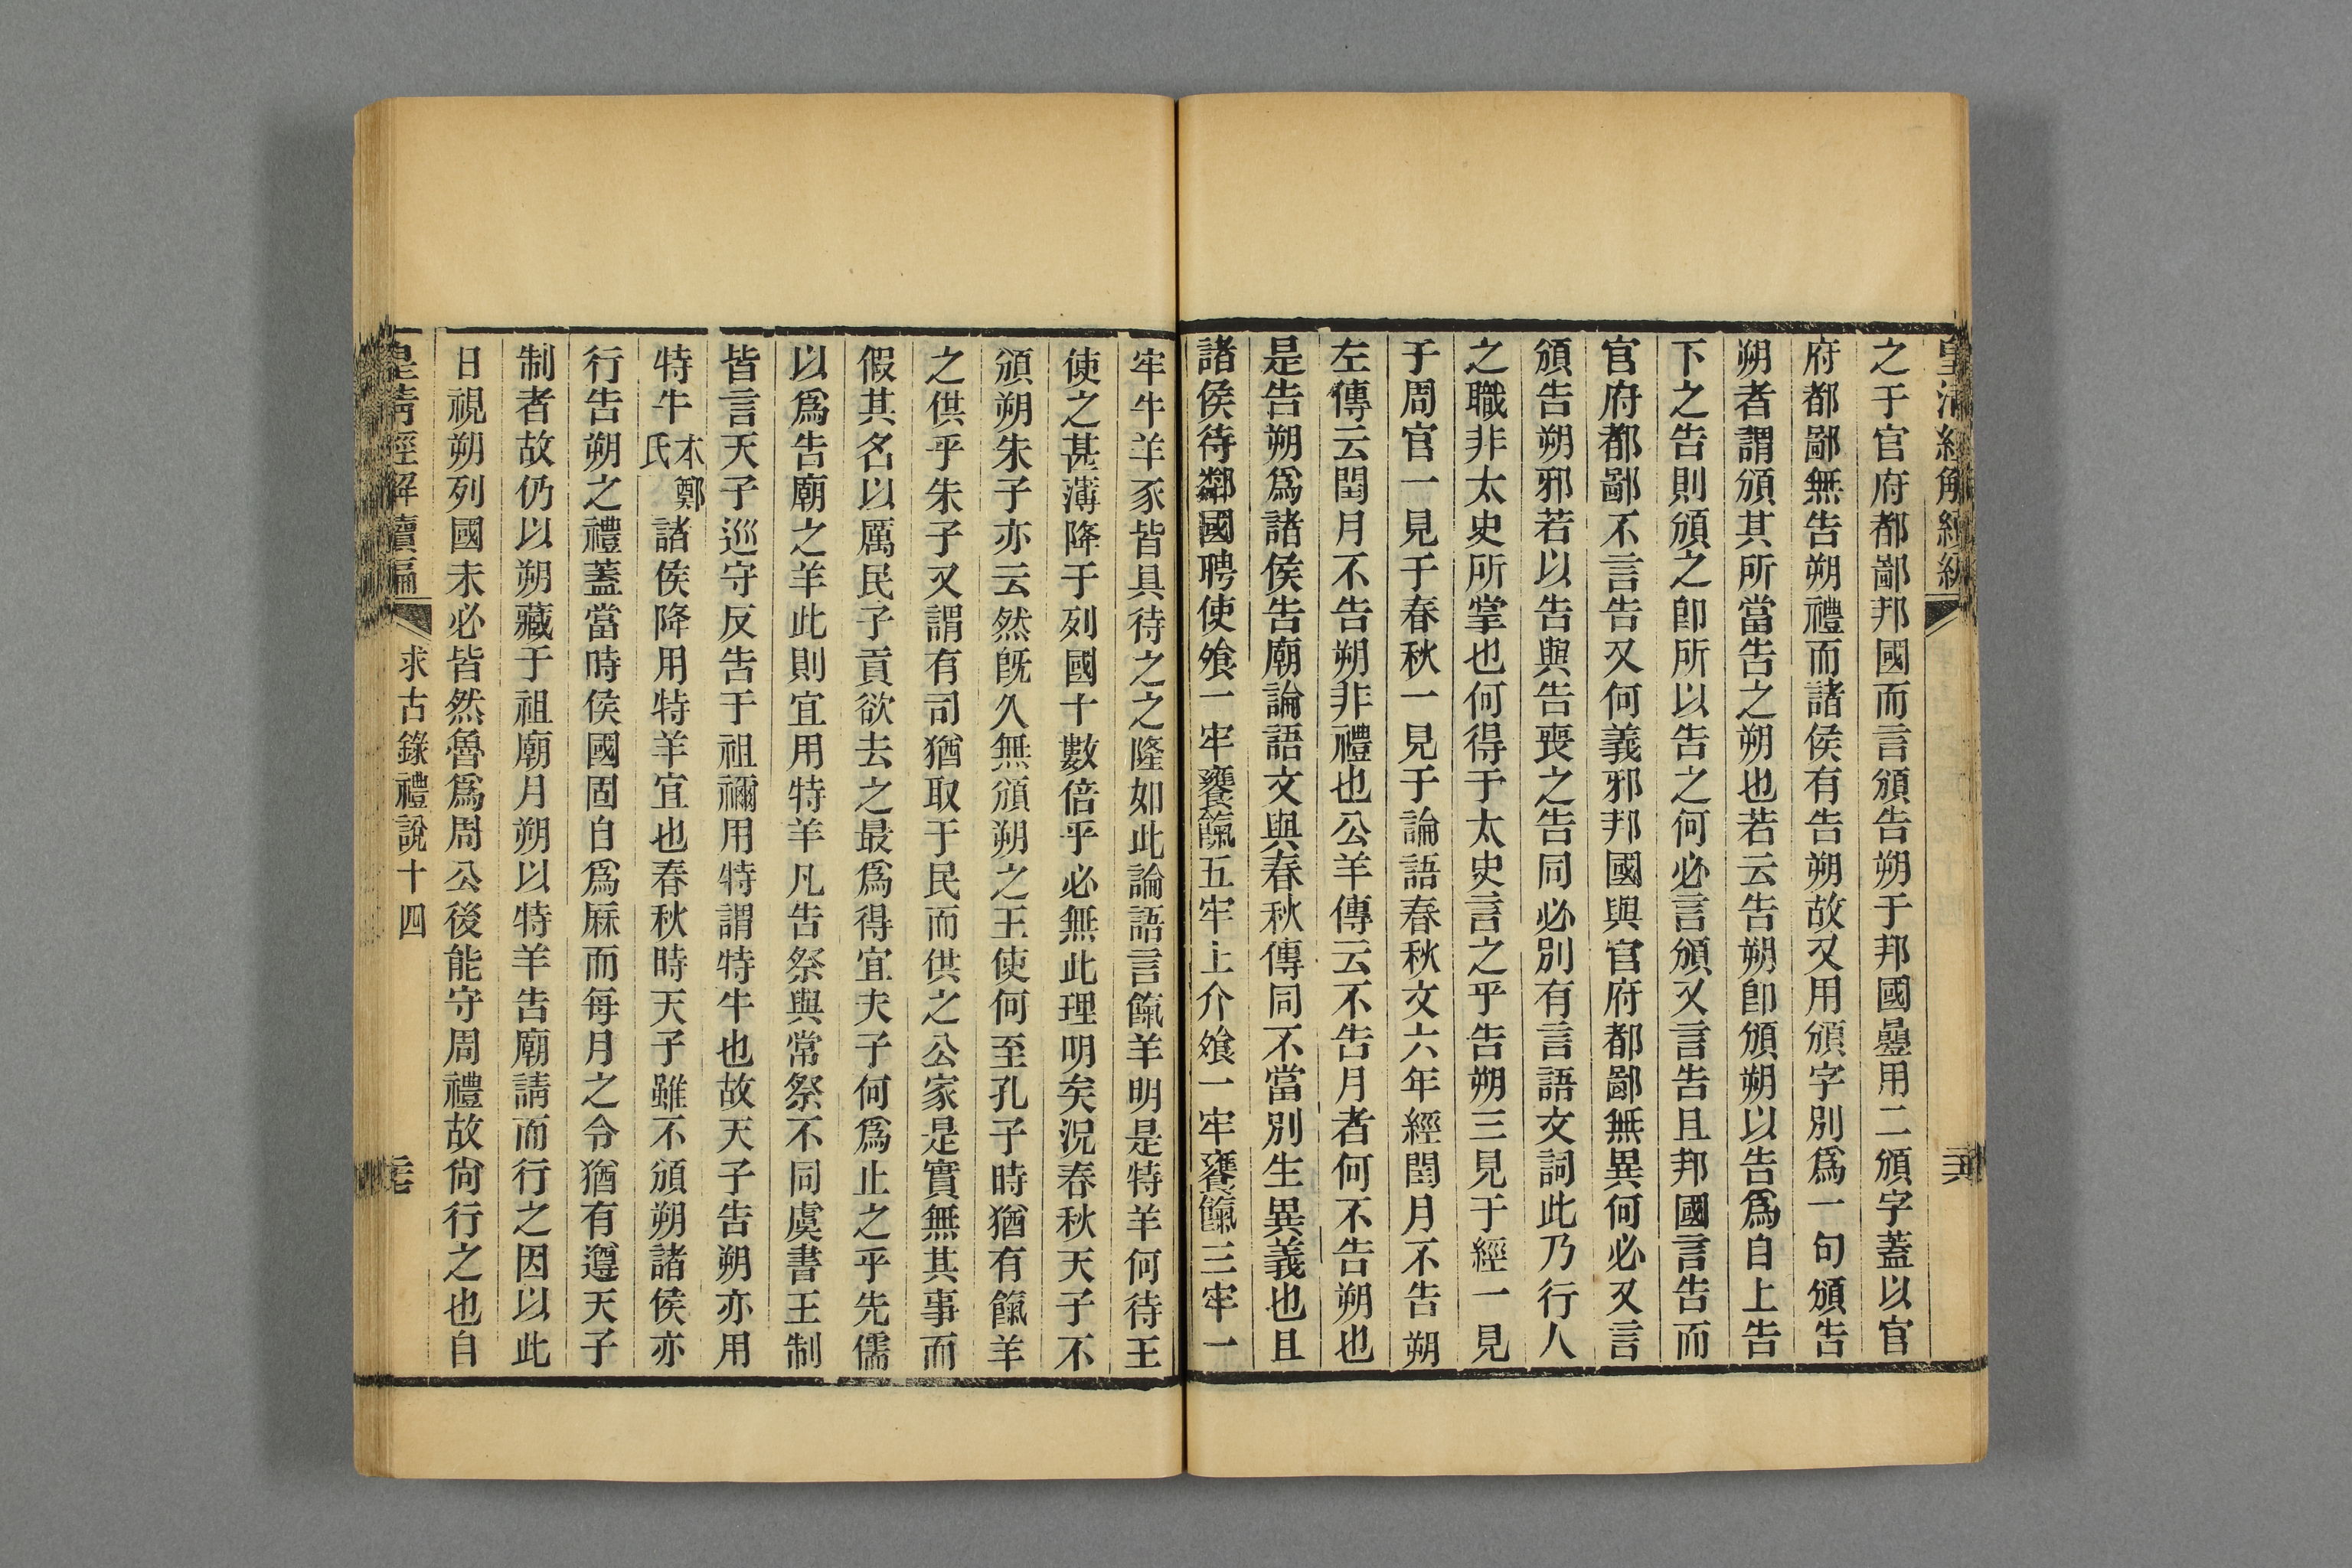 皇清經解續編
之于官府都鄙邦國而言頒告朔于邦國曡用二頒字蓋以官
府都鄙無告朔禮而諸侯有告朔故又用頒字別爲一句頒告
朔者謂頒其所當告之朔也若云告朔卽頒朔以告爲自上告
下之告則頒之卽所以告之何必言頒又言告且邦國言告而
官府都鄙不言告又何義邪邦國與官府都鄙無異何必又言
頒告朔邪若以告與告喪之告同必別有言語文詞此乃行人
之職非太史所掌也何得于太史言之乎告朔三見于經一見
于周官一見于春秋一見于論語春秋文六年經閏月不告朔
左傳云閏月不告朔非禮也公羊傳云不告月者何不告朔也
是告朔爲諸侯告廟論語文與春秋傳同不當別生異義也且
諸侯待鄰國聘使飧一牢饔餼五牢上介飧一牢饔餼三牢一
牢牛羊豕皆具待之之隆如此論語言餼羊明是特羊何待王
使之甚薄降于列國十數倍乎必無此理明矣況春秋天子不
頒朔朱子亦云然旣久無頒朔之王使何至孔子時猶有餼羊
之供乎朱子又謂有司猶取于民而供之公家是實無其事而
假其名以厲民子貢欲去之最爲得宜夫子何爲止之乎先儒
以爲告廟之羊此則宜用特羊凡告祭與常祭不同虞書王制
皆言天子巡守反告于祖禰用特謂特牛也故天子告朔亦用
特牛本鄭氏諸侯降用特羊宜也春秋時天子雖不頒朔諸侯亦
行告朔之禮蓋當時侯國固自爲厤而每月之令猶有遵天子
制者故仍以朔藏于祖廟月朔以特羊告廟請而行之因以此
日視朔列國未必皆然魯爲周公後能守周禮故尙行之也自
皇清經解續編
求古錄禮說十四